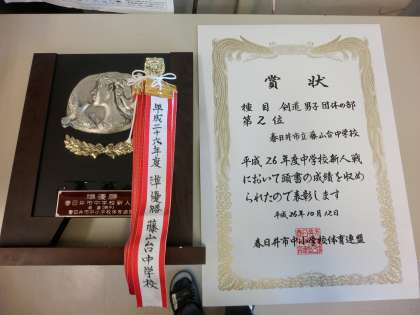 賞状
種目 剣道 男子 団体の部
第2位
春日井市立 藤山台中学校
平成26年度中学校新人戦
において頭書の成績を収め
られたので表彰します
平成26年10月12日
春日井市中小学校体育連盟
平成二十六年度 準優勝 藤山台中学校
準優勝
春日井市中学校新人
春日井市中小学校体育連盟